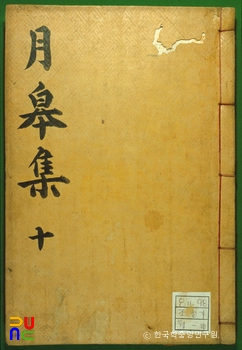 月皐集
十
ⓒ 한국학중앙연구원